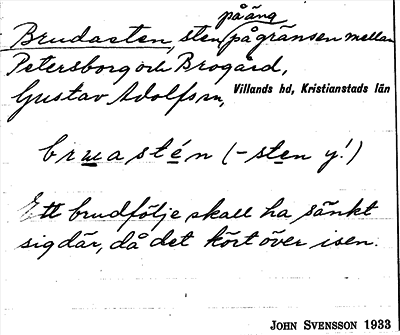 på äng
Brudasten, sten på gränsen mellan
Petersborg och Brogård,
Gustav Adolfs sn, Villands hd, Kristianstads län
brɯastén (-sten y!)
Ett brudfölje skall ha sänkt
sig där, då det kört över isen.
JOHN SVENSSON 1933